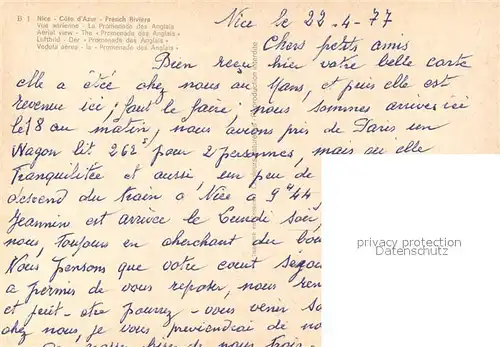 B 1 Nice - Côte d'Azur - French Rivièra
Vue aérienne - La Promenade des Anglais
Aerial view - The « Promenade des Anglais »
Luftbild - Der « Promenade des Anglais »
Veduta aérea - la « Promenade des Anglais »
Nice le 22-4-77
Chers petits amis
Bien reçu hier votre belle carte
elle a étée chez nous au Mans, et puis elle est
revenue ici ; faut le faire ; nous sommes arrives ici
le 18 au matin, nous avions pris de Paris un
Wagon lit 262 pour 2 personnes, mais au elle
Tranquilitée et aussi, un peu de
descend du train a Nice a 9 44
Jeannin est arrivée le Lundi soir,
nous, Toujours en cherchant du
Nous pensons que votre court
a permis de vous reposer, nous
et peut-etre pourrez-vous venir
chez nous, je vous previendrai de
de nous
privacy protection
Datenschutz